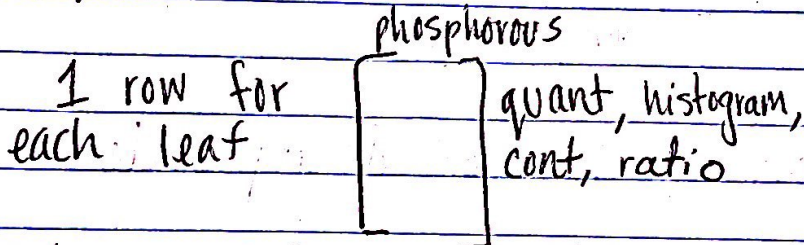 phosphorous
1 row for
each leaf
quant, histogram,
cont, ratio